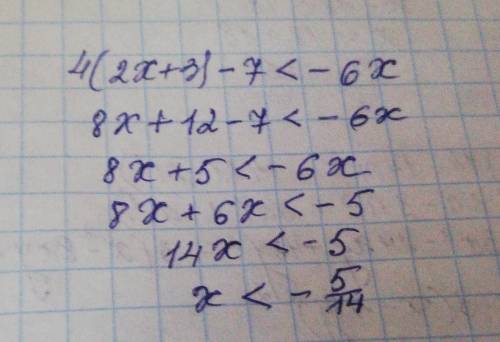 4(2x+3)-7<-6x
8x+12-7<-6x
8x+5<-6x
8x+6x<-5
14x<-5
x<-5/14